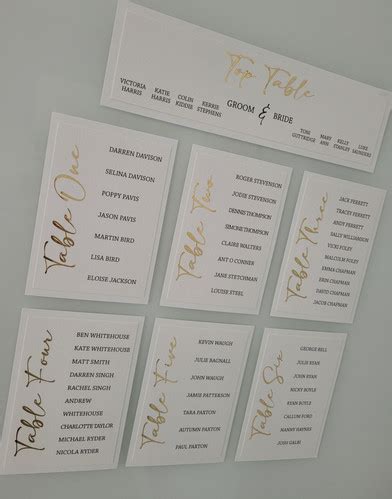 Top Table
VICTORIA HARRIS
KATIE HARRIS
COLIN KIDDIE
KERRIE STEPHENS
GROOM & BRIDE
TOM GUTTRIDGE
MARY ANN
KELLY STANLEY
LUKE SAUNDERS
Table One
DARREN DAVISON
SELINA DAVISON
POPPY PAVIS
JASON PAVIS
MARTIN BIRD
LISA BIRD
ELOISE JACKSON
Table Two
ROGER STEVENSON
JODIE STEVENSON
DENNIS THOMPSON
SIMONE THOMPSON
CLAIRE WALTERS
ANT O CONNER
JANE STETCHMAN
LOUISE STEEL
Table Three
JACK PERRETT
TRACEY PERRETT
ANDY PERRETT
SALLY WILLIAMSON
VICKI FOLEY
MALCOLM FOLEY
EMMA CHAPMAN
ERIN CHAPMAN
DAVID CHAPMAN
JACOB CHAPMAN
Table Four
BEN WHITEHOUSE
KATE WHITEHOUSE
MATT SMITH
DARREN SINGH
RACHEL SINGH
ANDREW
WHITEHOUSE
CHARLOTTE TAYLOR
MICHAEL RYDER
NICOLA RYDER
Table Five
KEVIN WAUGH
JULIE BAGNALL
JOHN WAUGH
JAMIE PATTERSON
TARA PAXTON
AUTUMN PAXTON
PAUL PAXTON
Table Six
GEORGE BELL
JULIE RYAN
JOHN RYAN
NICKY BOYLE
RYAN BOYLE
CALLUM FORD
HANNY HAYNES
JOSH GALBI